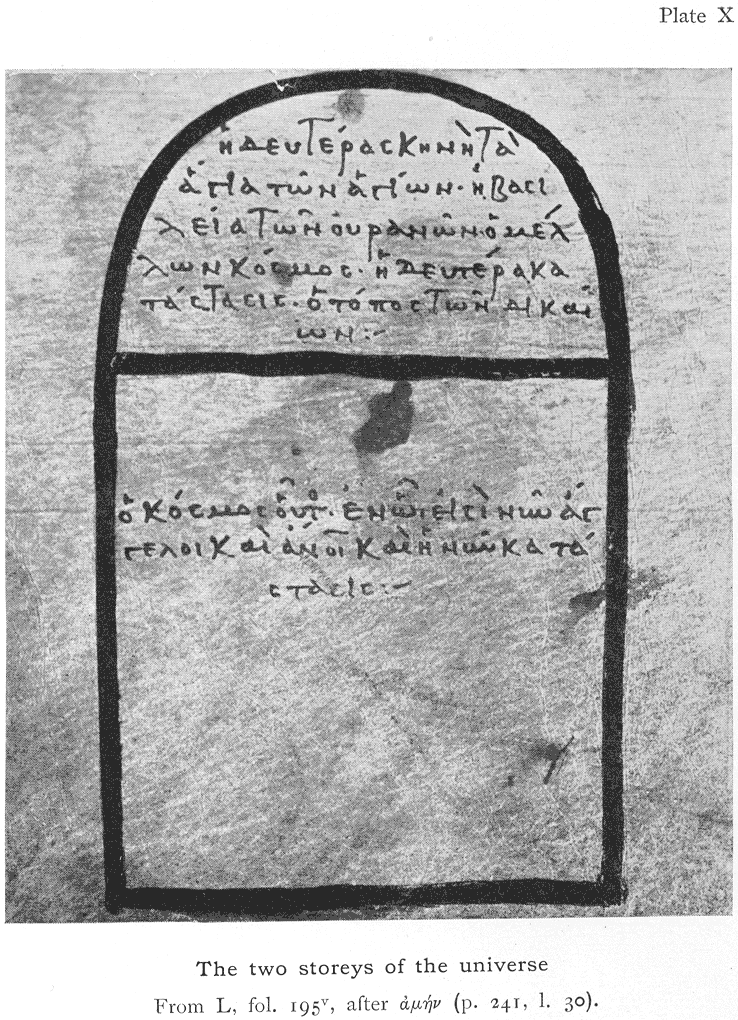 Plate X
ἡ δευτέρα σκηνὴ τὰ
ἅγια τῶν ἁγίων· ἡ βασι
λεία τῶν οὐρανῶν· ὁ μέλ
λων κόσμος· ἡ δευτέρα κα
τάστασις· ὁ τόπος τῶν δικαί
ων:~
ὁ κόσμος οὗτο· ἐν ᾧ εἰσὶ νῦν ἄγ
γελοι καὶ ἄν̅ο̅ι̅ καὶ ἡ νῦν κατά
στασις:~
The two storeys of the universe
From L, fol. 195ᵛ, after ἀμήν (p. 241, l. 30).